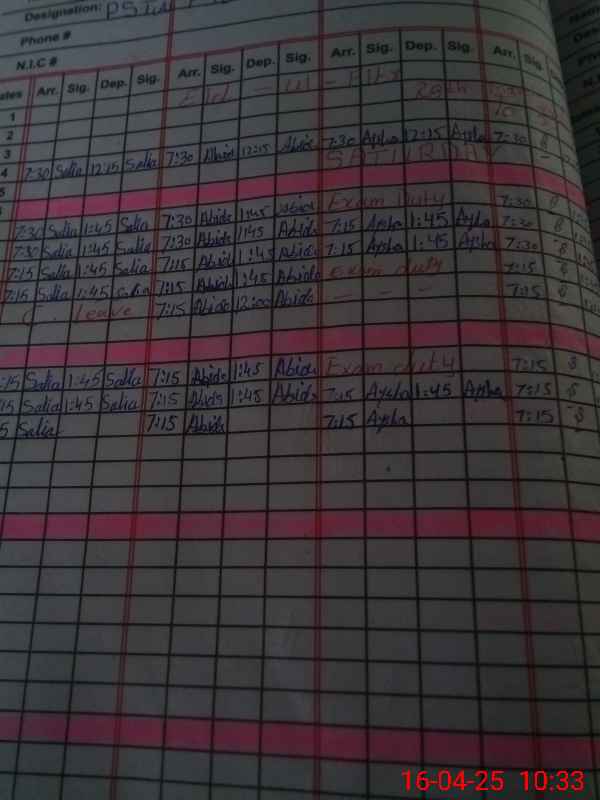 Designation: PST
Phone #
N.I.C #
ates Arr. Sig. Dep. Sig. Arr. Sig. Dep. Sig. Arr. Sig. Dep. Sig. Arr. Sig.
1 Eid - ul - Fitr
2
3
4 7:30 Salia 12:15 Salia 7:30 Abida 12:15 Abida 7:30 Aysha 12:15 Aysha 7:30
SATURDAY
5
7:30 Salia 1:45 Salia 7:30 Abida 1:45 Abida Exam Duty 7:30
7:30 Salia 1:45 Salia 7:30 Abida 1:45 Abida 7:15 Aysha 1:45 Aysha 7:30
7:15 Salia 1:45 Salia 7:15 Abida 1:45 Abida 7:15 Aysha 1:45 Aysha 7:30
7:15 Salia 1:45 Salia 7:15 Abida 1:45 Abida Exam duty 7:15
C. Leave 7:15 Abida 12:00 Abida - - - 7:15
:15 Salia 1:45 Salia 7:15 Abida 1:45 Abida Exam duty 7:15
15 Salia 1:45 Salia 7:15 Abida 1:45 Abida 7:15 Aysha 1:45 Aysha 7:15
5 Salia 7:15 Abida 7:15 Aysha 7:15
16-04-25 10:33